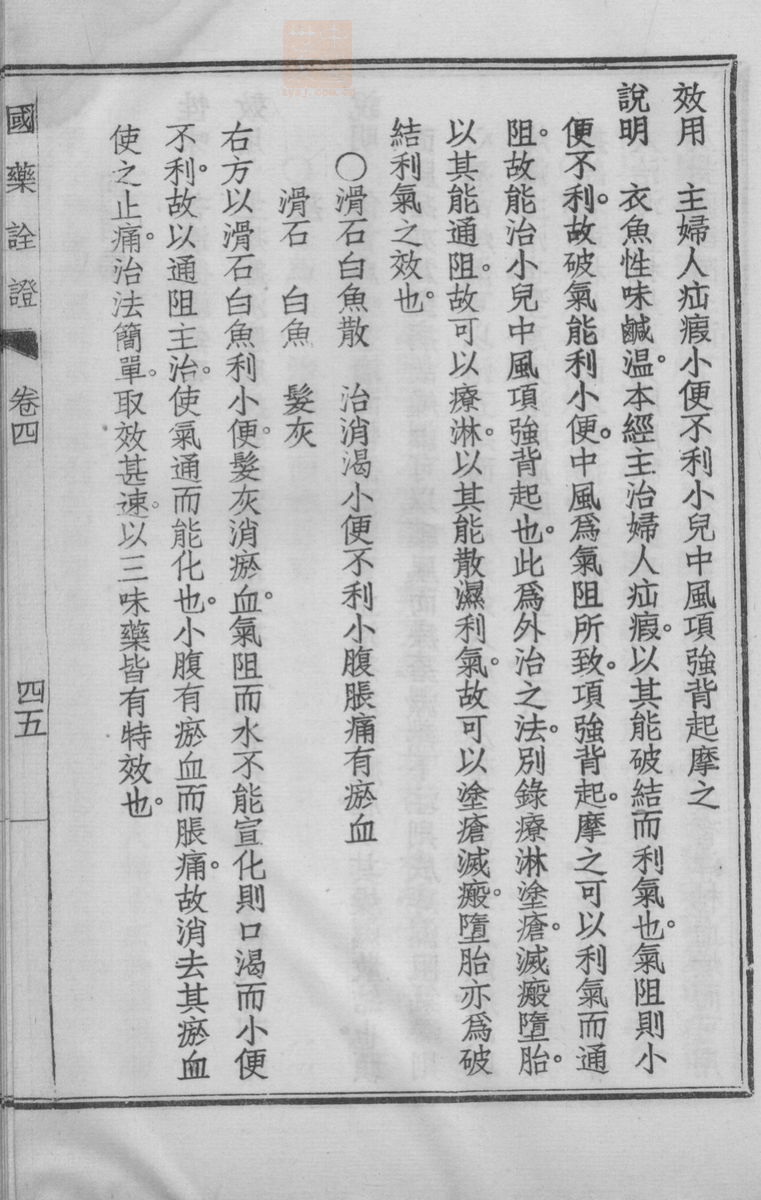 效用　主婦人疝瘕小便不利小兒中風項強背起摩之
說明　衣魚性味鹹温。本經主治婦人疝瘕。以其能破結而利氣也。氣阻則小
便不利。故破氣能利小便。中風爲氣阻所致。項強背起。摩之可以利氣而通
阻。故能治小兒中風項強背起也。此爲外治之法。別錄療淋塗瘡。滅瘢墮胎。
以其能通阻。故可以療淋。以其能散濕利氣。故可以塗瘡滅瘢。墮胎亦爲破
結利氣之效也。
〇滑石白魚散　治消渴小便不利小腹脹痛有瘀血
滑石　白魚　髮灰
右方以滑石白魚利小便。髮灰消瘀血。氣阻而水不能宣化則口渴而小便
不利。故以通阻主治。使氣通而能化也。小腹有瘀血而脹痛。故消去其瘀血
使之止痛。治法簡單。取效甚速。以三味藥皆有特效也。
國藥詮證　卷四　四五